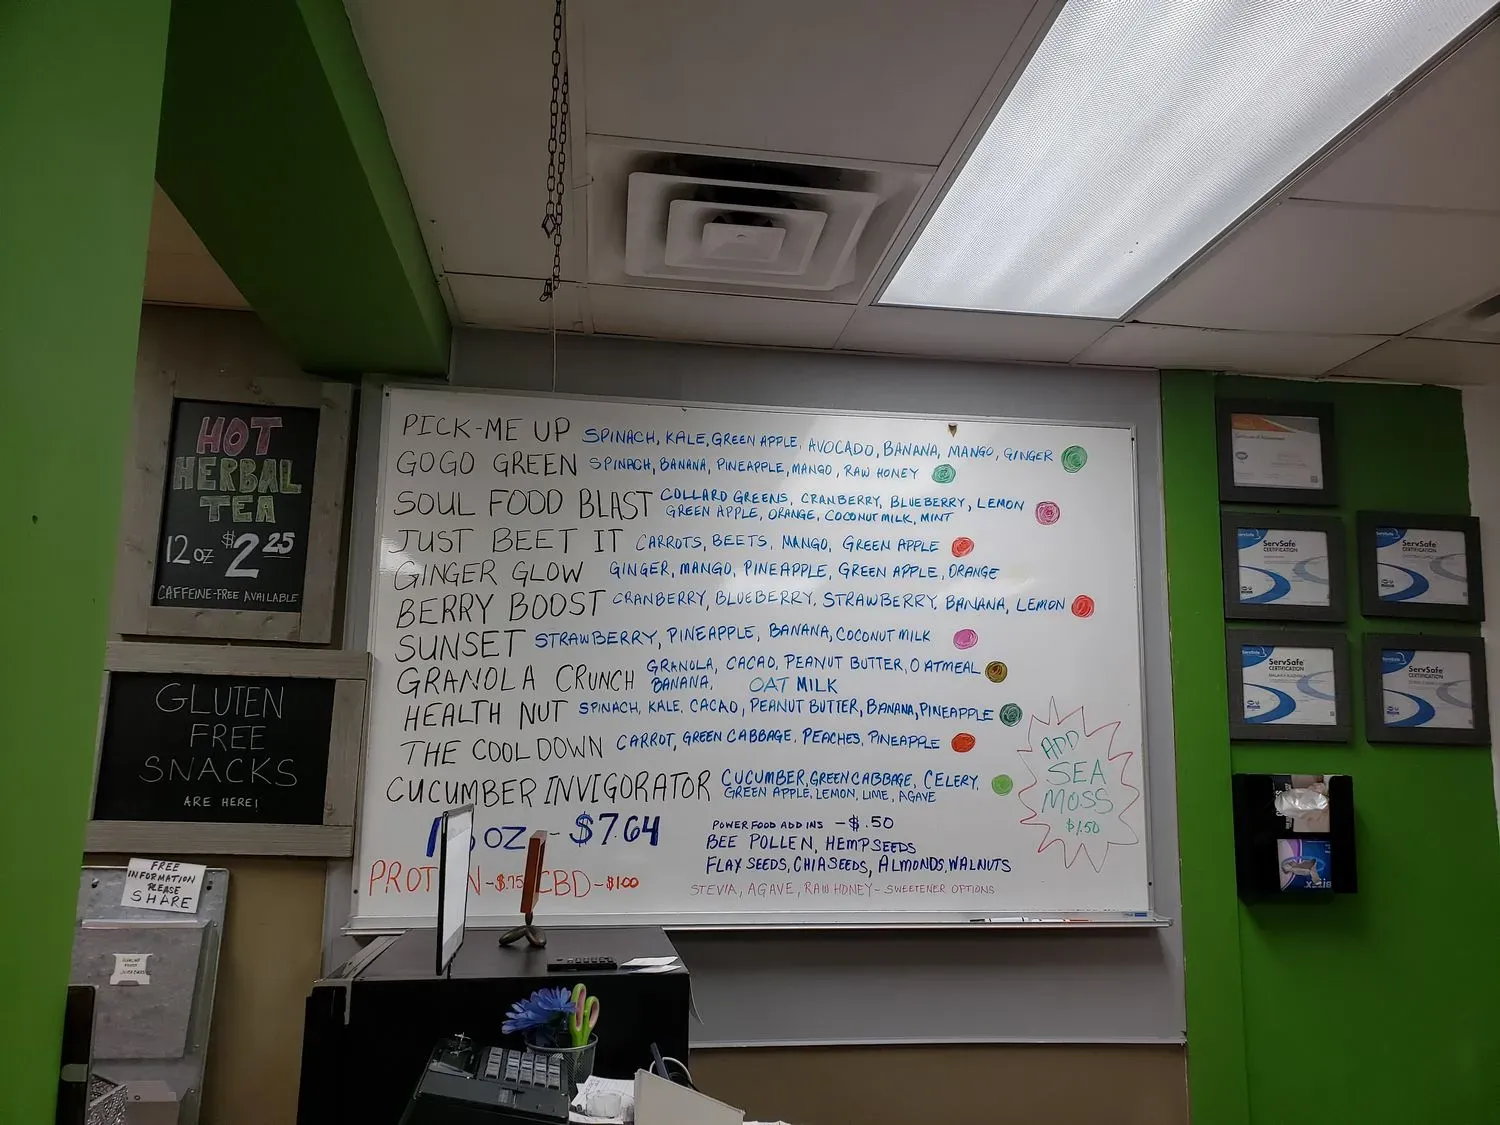 HOT
HERBAL
TEA
12 oz $2.25
CAFFEINE-FREE AVAILABLE
GLUTEN
FREE
SNACKS
ARE HERE!
FREE
INFORMATION
PLEASE
SHARE
PICK-ME UP SPINACH, KALE, GREEN APPLE, AVOCADO, BANANA, MANGO, GINGER
GOGO GREEN SPINACH, BANANA, PINEAPPLE, MANGO, RAW HONEY
SOUL FOOD BLAST COLLARD GREENS, CRANBERRY, BLUEBERRY, LEMON
GREEN APPLE, ORANGE, COCONUT MILK, MINT
JUST BEET IT CARROTS, BEETS, MANGO, GREEN APPLE
GINGER GLOW GINGER, MANGO, PINEAPPLE, GREEN APPLE, ORANGE
BERRY BOOST CRANBERRY, BLUEBERRY, STRAWBERRY, BANANA, LEMON
SUNSET STRAWBERRY, PINEAPPLE, BANANA, COCONUT MILK
GRANOLA CRUNCH GRANOLA, CACAO, PEANUT BUTTER, OATMEAL
BANANA, OAT MILK
HEALTH NUT SPINACH, KALE, CACAO, PEANUT BUTTER, BANANA, PINEAPPLE
THE COOL DOWN CARROT, GREEN CABBAGE, PEACHES, PINEAPPLE
CUCUMBER INVIGORATOR CUCUMBER, GREEN CABBAGE, CELERY,
GREEN APPLE, LEMON, LIME, AGAVE
ADD
SEA
MOSS
$1.50
OZ - $7.64
CBD - $1.00
POWER FOOD ADD INS - $.50
BEE POLLEN, HEMP SEEDS
FLAX SEEDS, CHIA SEEDS, ALMONDS, WALNUTS
STEVIA, AGAVE, RAW HONEY - SWEETENER OPTIONS
ServSafe
CERTIFICATION
ServSafe
CERTIFICATION
ServSafe
CERTIFICATION
ServSafe
CERTIFICATION